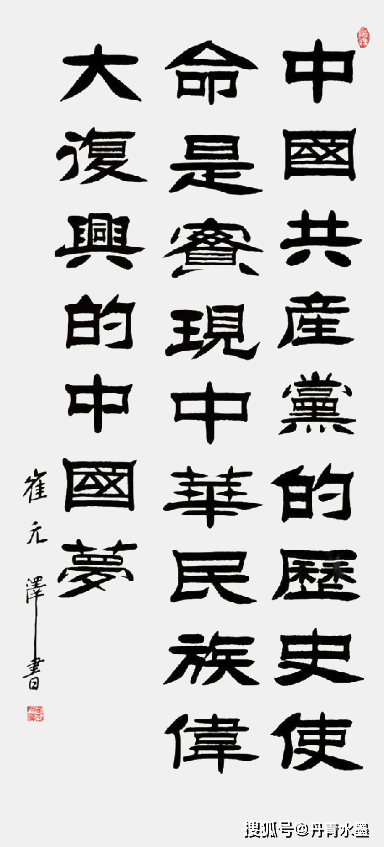 中國共産黨的歷史使
命是實現中華民族偉
大復興的中國夢
崔元澤書
搜狐号@丹青水墨